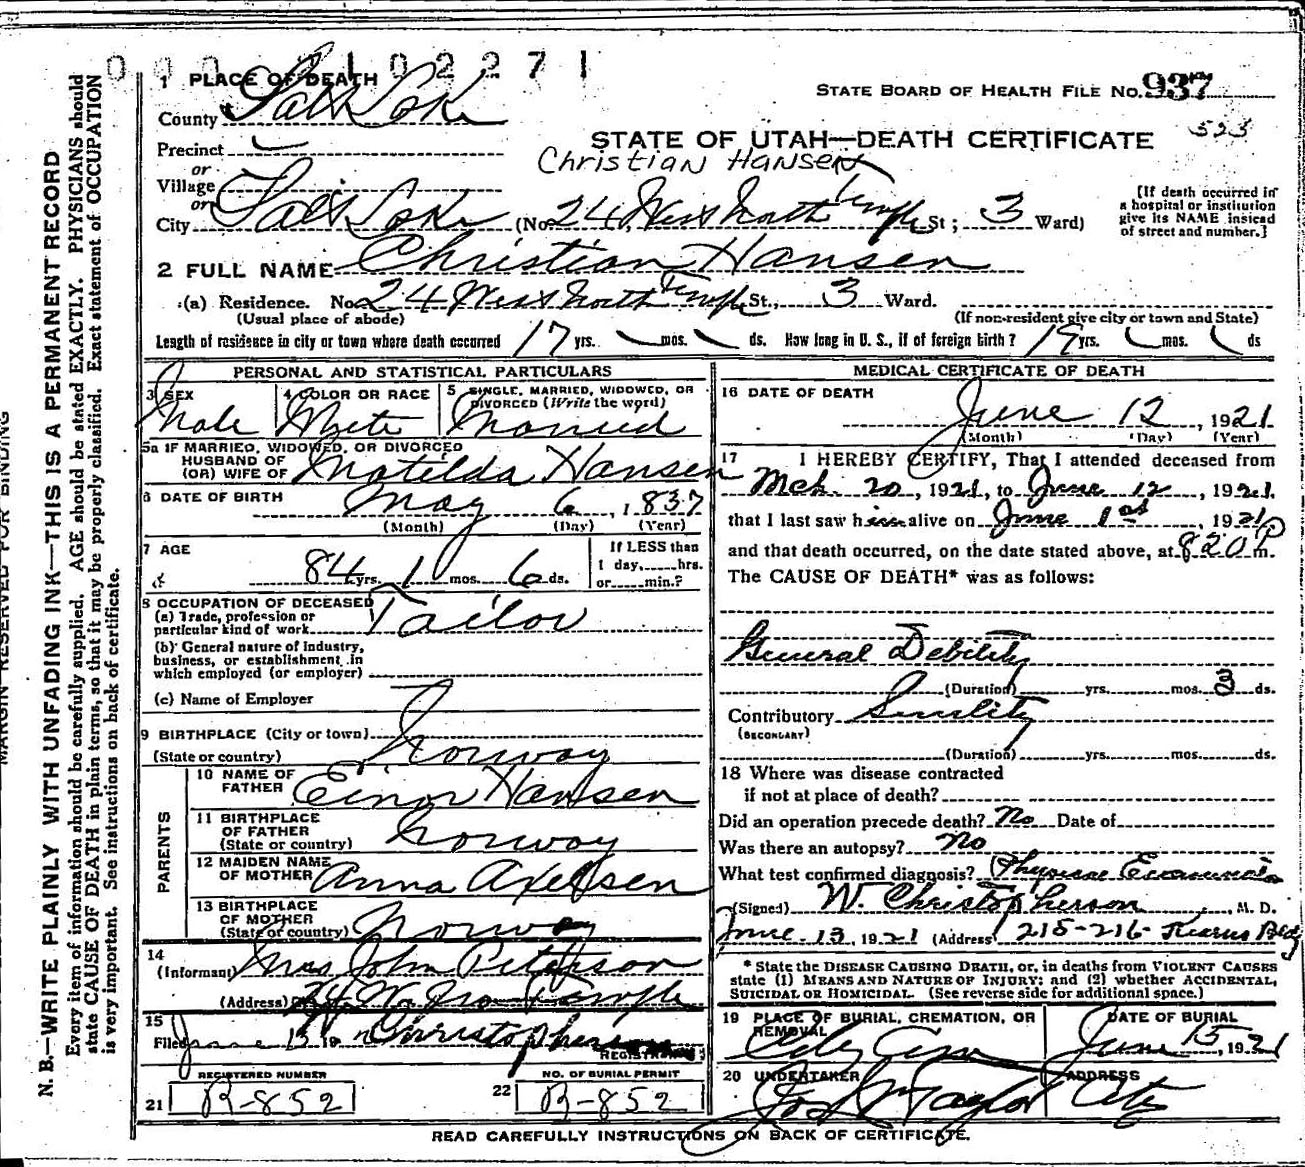 0 0 0 2 1 0 2 2 7 1
1 PLACE OF DEATH
County Salt Lake
STATE BOARD OF HEALTH FILE NO. 937
523
STATE OF UTAH—DEATH CERTIFICATE
Precinct
CHRISTIAN HANSEN
or
Village
or
City Salt Lake (No. 24 West North Temple St; 3 Ward)
[If death occurred in
a hospital or institution
give its NAME instead
of street and number.]
2 FULL NAME Christian Hansen
(a) Residence. No. 24 West North Temple St., 3 Ward.
(Usual place of abode)
(If non-resident give city or town and State)
Length of residence in city or town where death occurred 17 yrs. mos. ds. How long in U. S., if of foreign birth? 19 yrs. mos. ds
PERSONAL AND STATISTICAL PARTICULARS
3 SEX
Male
4 COLOR OR RACE
White
5 SINGLE, MARRIED, WIDOWED, OR
DIVORCED (Write the word)
Married
5a IF MARRIED, WIDOWED, OR DIVORCED
HUSBAND OF
(OR) WIFE OF Matilda Hansen
6 DATE OF BIRTH
May 6, 1837
(Month) (Day) (Year)
7 AGE
84 yrs. 1 mos. 6 ds.
If LESS than
1 day, hrs.
or min.?
8 OCCUPATION OF DECEASED
(a) Trade, profession or
particular kind of work Tailor
(b) General nature of Industry,
business, or establishment in
which employed (or employer)
(c) Name of Employer
9 BIRTHPLACE (City or town)
(State or country) Norway
PARENTS
10 NAME OF
FATHER Einor Hansen
11 BIRTHPLACE
OF FATHER
(State or country) Norway
12 MAIDEN NAME
OF MOTHER Anna Axelsen
13 BIRTHPLACE
OF MOTHER
(State or country) Norway
14
(Informant) Mrs John Peterson
(Address) 24 W. No Temple
15
Filed June 13 19 Christopherson
REGISTRAR
REGISTERED NUMBER
21 R-852
NO. OF BURIAL PERMIT
22 R-852
MEDICAL CERTIFICATE OF DEATH
16 DATE OF DEATH
June 12, 1921
(Month) (Day) (Year)
17 I HEREBY CERTIFY, That I attended deceased from
Mch. 20, 1921, to June 12, 1921,
that I last saw him alive on June 1st, 1921
and that death occurred, on the date stated above, at 820 P m.
The CAUSE OF DEATH* was as follows:
General Debility
(Duration) yrs. mos. 3 ds.
Contributory Senility
(SECONDARY)
(Duration) yrs. mos. ds.
18 Where was disease contracted
if not at place of death?
Did an operation precede death? No Date of
Was there an autopsy? No
What test confirmed diagnosis? Physical Examination
(Signed) W. Christopherson, M. D.
June 13, 1921 (Address) 215-216 Kearns Bldg
* State the DISEASE CAUSING DEATH, or, in deaths from VIOLENT CAUSES
state (1) MEANS AND NATURE OF INJURY; and (2) whether ACCIDENTAL,
SUICIDAL OR HOMICIDAL. (See reverse side for additional space.)
19 PLACE OF BURIAL, CREMATION, OR
REMOVAL
City Cem
DATE OF BURIAL
June 15, 1921
20 UNDERTAKER
Jos Taylor
ADDRESS
City
READ CAREFULLY INSTRUCTIONS ON BACK OF CERTIFICATE.
MARGIN RESERVED FOR BINDING
N. B.—WRITE PLAINLY WITH UNFADING INK—THIS IS A PERMANENT RECORD
Every item of information should be carefully supplied. AGE should be stated EXACTLY. PHYSICIANS should
state CAUSE OF DEATH in plain terms, so that it may be properly classified. Exact statement of OCCUPATION
is very important. See instructions on back of certificate.